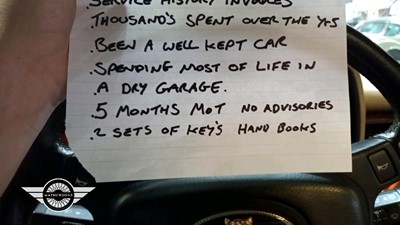 .SERVICE HISTORY INVOICES
.THOUSAND'S SPENT OVER THE YRS
.BEEN A WELL KEPT CAR
.SPENDING MOST OF LIFE IN
.A DRY GARAGE.
.5 MONTHS MOT NO ADVISORIES
.2 SETS OF KEY'S HAND BOOKS